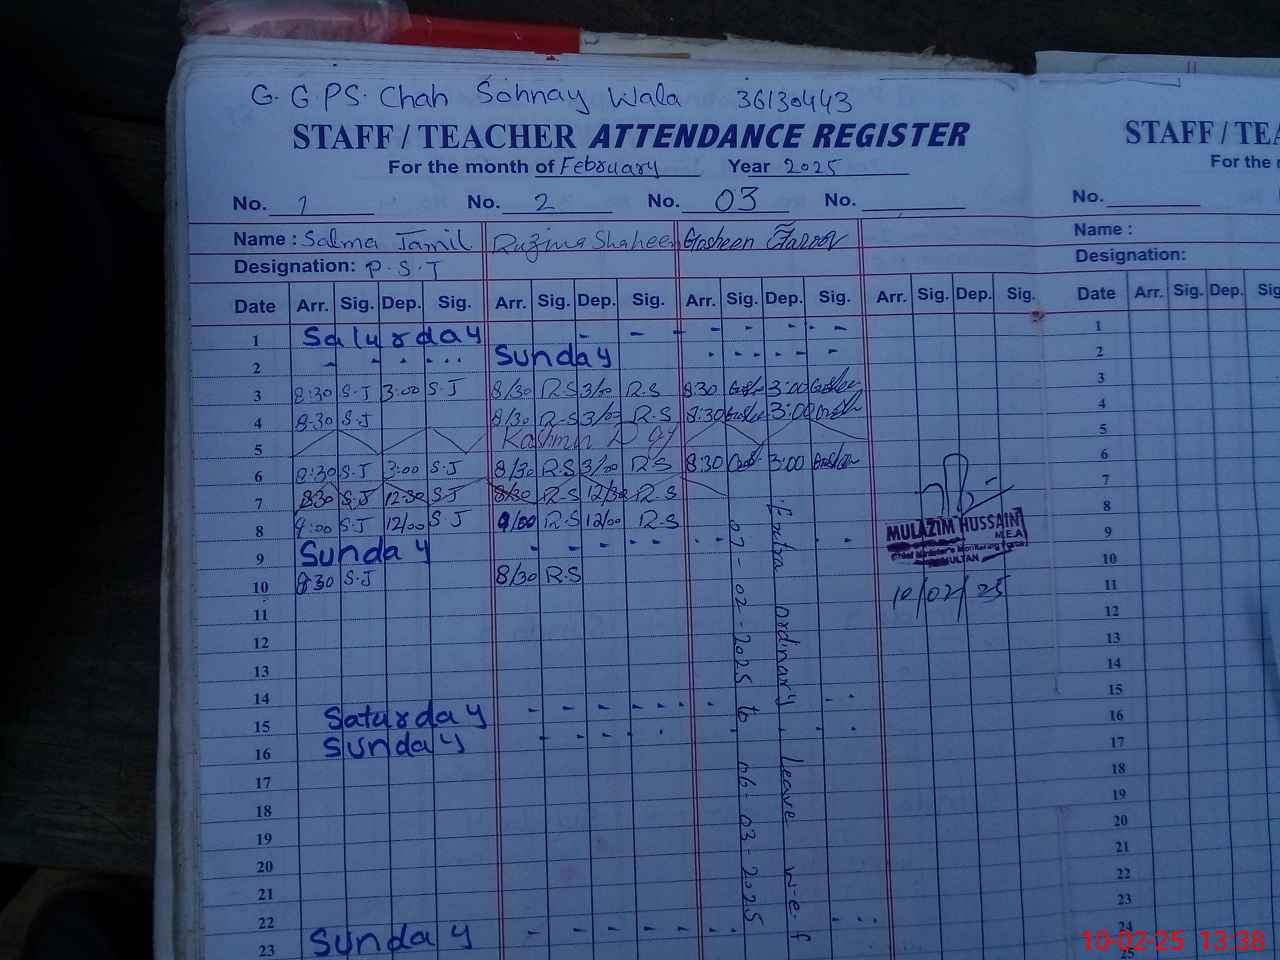 G. G PS. Chah Sohnay Wala 36130443
STAFF / TEACHER ATTENDANCE REGISTER
For the month of February Year 2025
No. 1 No. 2 No. 03 No.
Name : Salma Jamil Ruzina Shaheen
Designation: P.S.T
Date Arr. Sig. Dep. Sig. Arr. Sig. Dep. Sig. Arr. Sig. Dep. Sig. Arr. Sig. Dep. Sig.
1 Saturday - - - - - - - -
2 - - - - - Sunday - - - - - -
3 8:30 S.J 3:00 S.J 8/30 R.S 3/00 R.S 8:30 3:00
4 8:30 S.J 8/30 R.S 3/00 R.S 8:30 3:00
5 Kashmir Day
6 8:30 S.J 3:00 S.J 8/30 R.S 3/00 R.S 8:30 3:00
7 8:30 S.J 12:30 S.J 8/30 R.S 12/30 R.S
8 9:00 S.J 12/00 S.J 9/00 R.S 12/00 R.S
9 Sunday - - - - - - - - -
10 8:30 S.J 8/30 R.S
11
12
13
14
15 Saturday - - - - - - -
16 Sunday - - - - -
17
18
19
20
21
22
23 Sunday - - - - - -
Extra ordinary leave w.e.f
07-02-2025 to 06-03-2025
MULAZIM HUSSAIN
M.E.A
Chief Minister's Monitoring Force
MULTAN
10/02/25
STAFF / TEA
For the
No.
Name :
Designation:
Date Arr. Sig. Dep. Sig
1
2
3
4
5
6
7
8
9
10
11
12
13
14
15
16
17
18
19
20
21
22
23
24
25
10-02-25 13:38